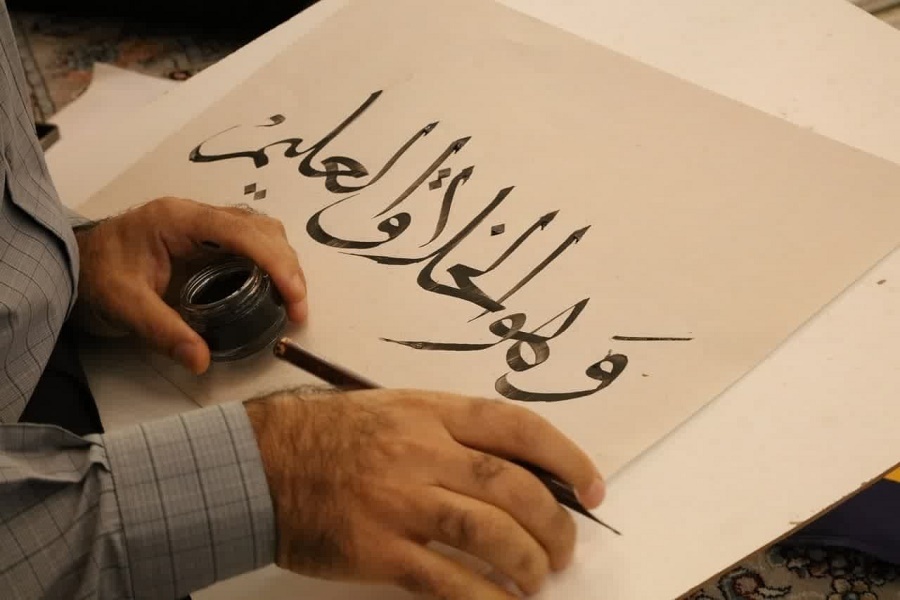 وَهو الخلاق العلیمُ